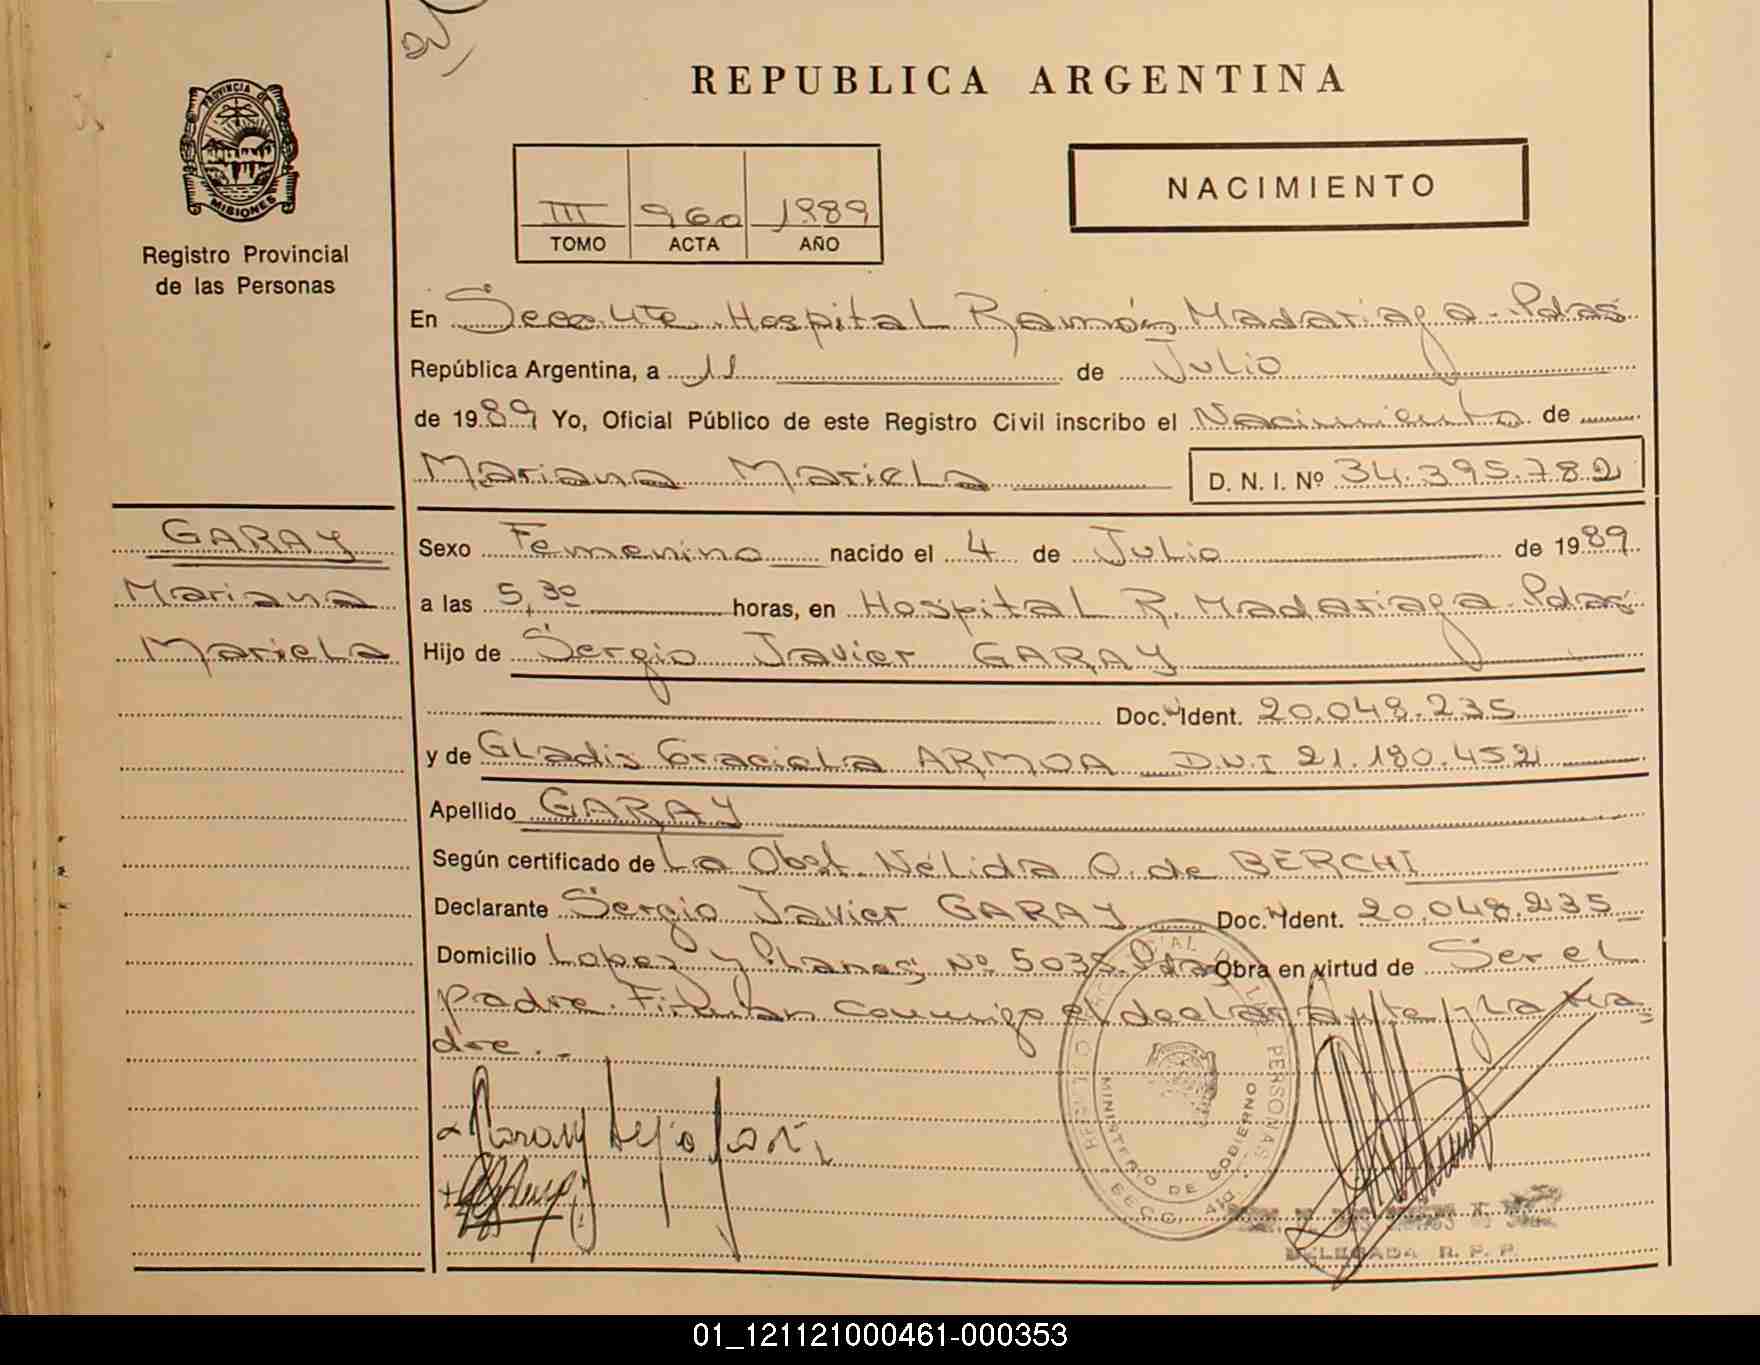 REPUBLICA ARGENTINA
PROVINCIA DE
MISIONES
Registro Provincial
de las Personas
NACIMIENTO
III 960 1989
TOMO ACTA AÑO
En Hospital Ramón Madariaga - Pdas
República Argentina, a 11 de Julio
de 1989 Yo, Oficial Público de este Registro Civil inscribo el Nacimiento de
Mariana Mariela D. N. I. Nº 34.395.782
GARAY
Mariana
Mariela
Sexo Femenino nacido el 4 de Julio de 1989
a las 5,30 horas, en Hospital R. Madariaga - Pdas
Hijo de Sergio Javier GARAY
Doc. Ident. 20.048.235
y de Gladis Graciela ARMOA DNI 21.180.452
Apellido GARAY
Según certificado de La Obst. Nélida O. de BERCHI
Declarante Sergio Javier GARAY Doc. Ident. 20.048.235
Domicilio Lopez y Planes Nº 5035 - Pdas Obra en virtud de Ser el
padre. Firman conmigo el declarante y La ma
dre. -
Garay
PERSONAS
MINISTERIO DE GOBIERNO
DELEGADA R. P. P.
01_121121000461-000353